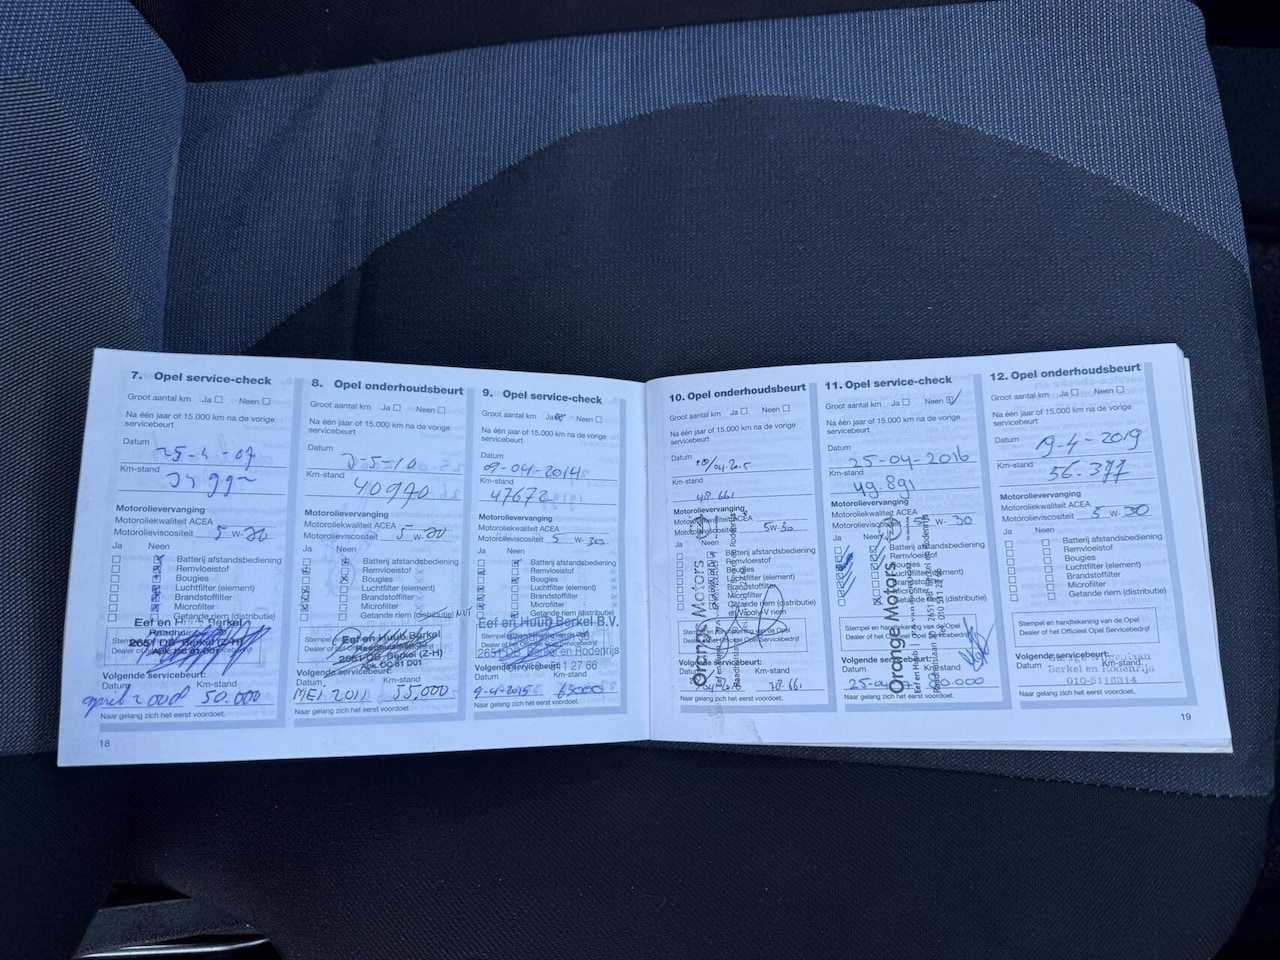 7. Opel service-check
Groot aantal km Ja Neen
Na één jaar of 15.000 km na de vorige
servicebeurt
Datum
25-4-07
Km-stand
Motorolievervanging
Motoroliekwaliteit ACEA
Motorolieviscositeit 5 W-30
Ja Neen
Batterij afstandsbediening
Remvloeistof
Bougies
Luchtfilter (element)
Brandstoffilter
Microfilter
Getande riem (distributie)
Eef en Huub Berkel
Volgende servicebeurt:
Datum Km-stand
april 2008 50.000
Naar gelang zich het eerst voordoet.
18
8. Opel onderhoudsbeurt
Groot aantal km Ja Neen
Na één jaar of 15.000 km na de vorige
servicebeurt
Datum
Km-stand
40970
Motorolievervanging
Motoroliekwaliteit ACEA
Motorolieviscositeit 5 W-30
Ja Neen
Batterij afstandsbediening
Remvloeistof
Bougies
Luchtfilter (element)
Brandstoffilter
Microfilter
Getande riem (distributie)
Eef en Huub Berkel
2651 DB Berkel (Z-H)
Volgende servicebeurt:
Datum Km-stand
MEI 2011 55.000
Naar gelang zich het eerst voordoet.
9. Opel service-check
Groot aantal km Ja Neen
Na één jaar of 15.000 km na de vorige
servicebeurt
Datum
09-04-2014
Km-stand
47672
Motorolievervanging
Motoroliekwaliteit ACEA
Motorolieviscositeit 5 W-30
Ja Neen
Batterij afstandsbediening
Remvloeistof
Bougies
Luchtfilter (element)
Brandstoffilter
Microfilter
Getande riem (distributie)
Eef en Huub Berkel B.V.
2651 DB Berkel en Rodenrijs
Volgende servicebeurt:
Datum Km-stand
9-4-2015
Naar gelang zich het eerst voordoet.
10. Opel onderhoudsbeurt
Groot aantal km Ja Neen
Na één jaar of 15.000 km na de vorige
servicebeurt
Datum
Km-stand
48.661
Motorolievervanging
Motoroliekwaliteit ACEA
Motorolieviscositeit 5W-30
Ja Neen
Batterij afstandsbediening
Remvloeistof
Bougies
Luchtfilter (element)
Brandstoffilter
Microfilter
Getande riem (distributie)
en V/poly-V riem
Stempel en handtekening van de Opel
Dealer of het Officieel Opel Servicebedrijf
Orange Motors
Volgende servicebeurt:
Datum Km-stand
Naar gelang zich het eerst voordoet.
11. Opel service-check
Groot aantal km Ja Neen
Na één jaar of 15.000 km na de vorige
servicebeurt
Datum
25-04-2016
Km-stand
49.891
Motorolievervanging
Motoroliekwaliteit ACEA
Motorolieviscositeit 5 W-30
Ja Neen
Batterij afstandsbediening
Remvloeistof
Bougies
Luchtfilter (element)
Brandstoffilter
Microfilter
Getande riem (distributie)
Stempel en handtekening van de Opel
Dealer of het Officieel Opel Servicebedrijf
Orange Motors
Volgende servicebeurt:
Datum Km-stand
Naar gelang zich het eerst voordoet.
12. Opel onderhoudsbeurt
Groot aantal km Ja Neen
Na één jaar of 15.000 km na de vorige
servicebeurt
Datum
19-4-2019
Km-stand
56.377
Motorolievervanging
Motoroliekwaliteit ACEA
Motorolieviscositeit 5 W-30
Ja Neen
Batterij afstandsbediening
Remvloeistof
Bougies
Luchtfilter (element)
Brandstoffilter
Microfilter
Getande riem (distributie)
Stempel en handtekening van de Opel
Dealer of het Officieel Opel Servicebedrijf
Volgende servicebeurt:
Datum Km-stand
Berkel en Rodenrijs
010-5118314
Naar gelang zich het eerst voordoet.
19